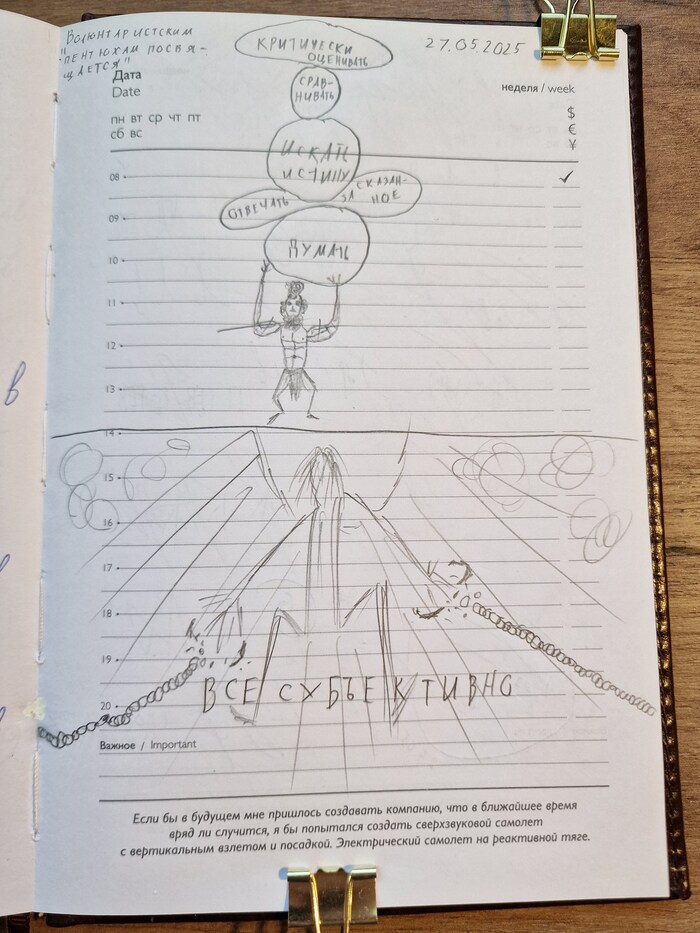 Волюнтаристским
"пентюхам посвя-
щается"
27.05.2025
Дата
Date
неделя / week
пн вт ср чт пт
сб вс
$
€
¥
КРИТИЧЕСКИ
ОЦЕНИВАТЬ
СРАВ-
НИВАТЬ
ИСКАТЬ
ИСТИНУ
ОТВЕЧАТЬ
ЗА СКАЗАН-
НОЕ
ДУМАТЬ
08
09
10
11
12
13
14
15
16
17
18
19
20
ВСЕ СУБЪЕКТИВНО
Важное / Important
Если бы в будущем мне пришлось создавать компанию, что в ближайшее время
вряд ли случится, я бы попытался создать сверхзвуковой самолет
с вертикальным взлетом и посадкой. Электрический самолет на реактивной тяге.
в